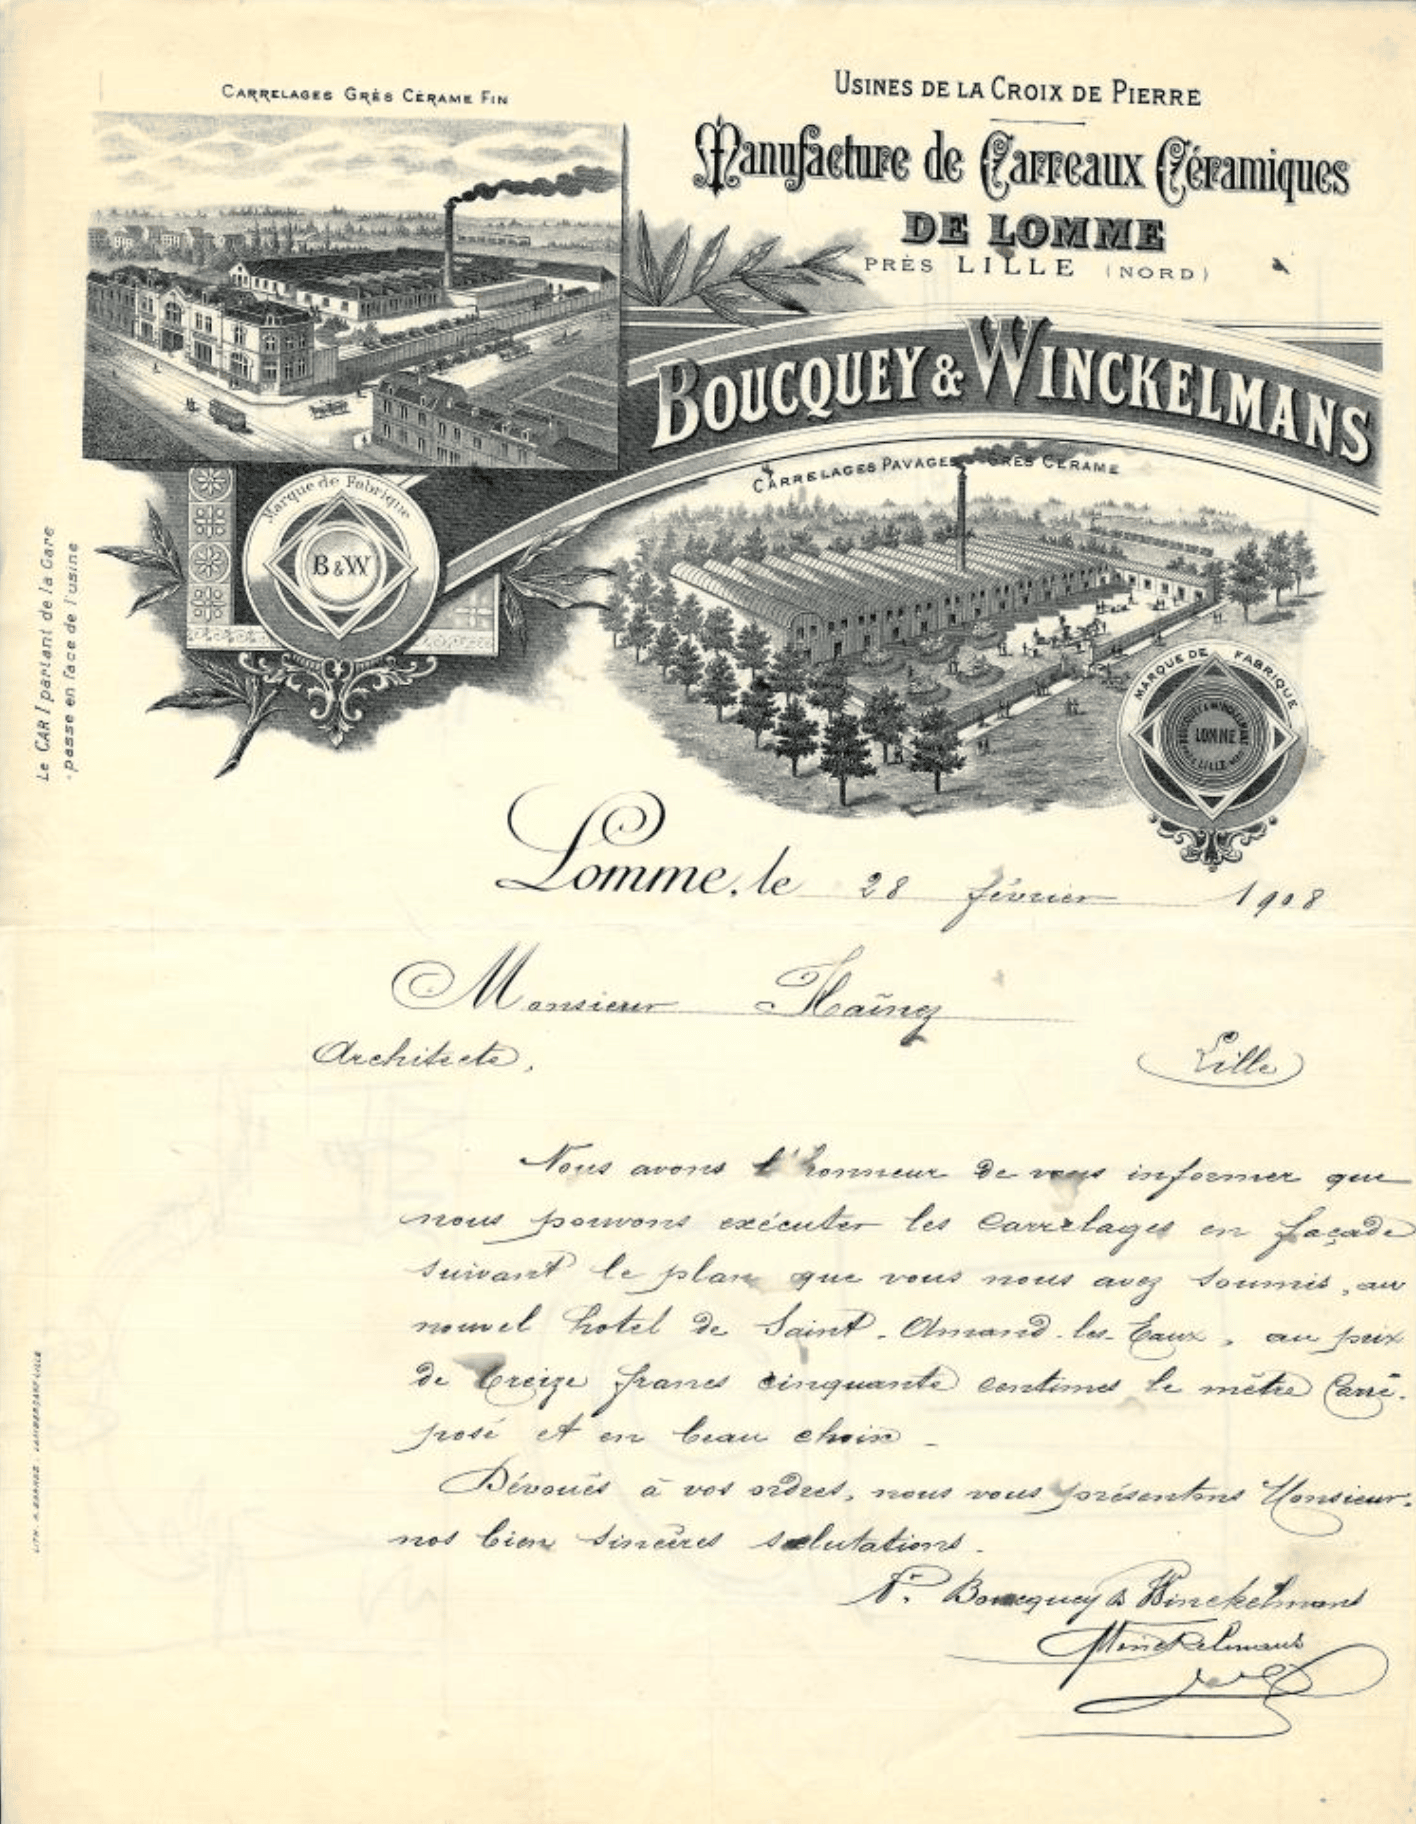 CARRELAGES GRÈS CÉRAME FIN
USINES DE LA CROIX DE PIERRE
Manufacture de Carreaux Céramiques
DE LOMME
PRÈS LILLE (NORD)
BOUCQUEY & WINCKELMANS
CARRELAGES PAVAGES GRÈS CÉRAME
Marque de Fabrique
B & W
MARQUE DE FABRIQUE
BOUCQUEY & WINCKELMANS
LOMME
LILLE
Le CAR I partant de la Gare
passe en face de l'usine
Lomme, le 28 février 1908
Monsieur Hainez
Architecte,
Lille
Nous avons l'honneur de vous informer que
nous pouvons exécuter les carrelages en façade
suivant le plan que vous nous avez soumis, au
nouvel hotel de Saint-Amand-les-Eaux, au prix
de treize francs cinquante centimes le mètre carré
posé et en beau choix.
Dévoués à vos ordres, nous vous présentons Monsieur,
nos bien sincères salutations.
Pr. Boucquey & Winckelmans
Winckelmans